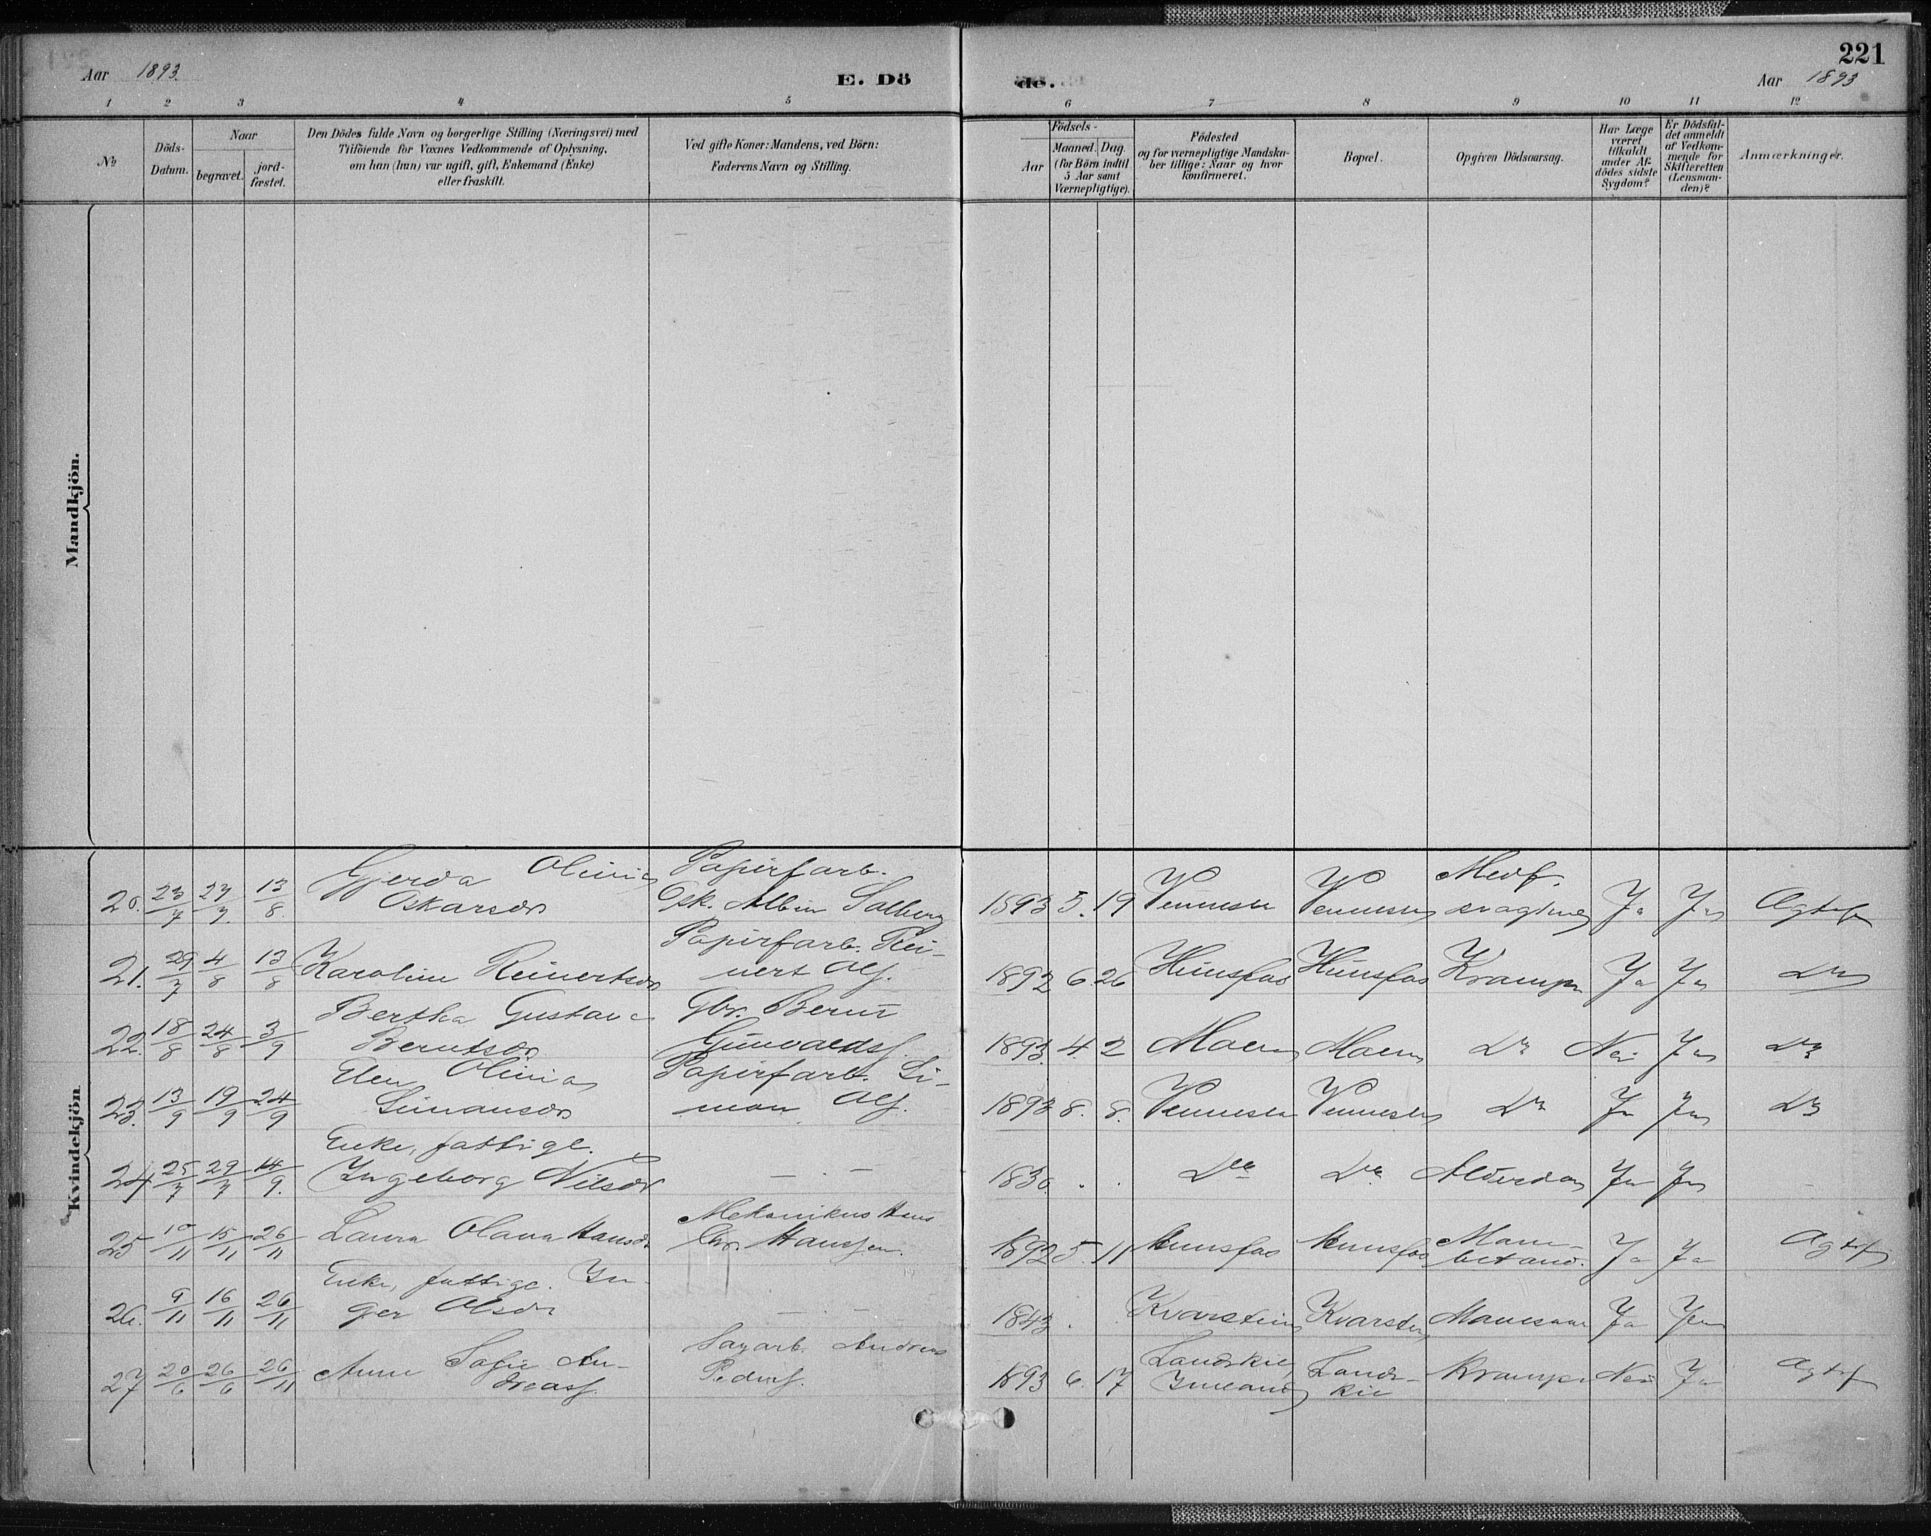 221
Aar 1893.
E. Dö
de.
Aar 1893
1 2 3 4 5 6 7 8 9 10 11 12
No
Döds-
Datum.
Naar
begravet.
jord-
fæstet.
Den Dödes fulde Navn og borgerlige Stilling (Næringsvei) med
Tilföiende for Voxnes Vedkommende af Oplysning,
om han (hun) var ugift, gift, Enkemand (Enke)
eller fraskilt.
Ved gifte Koner: Mandens, ved Börn:
Faderens Navn og Stilling.
Födsels-
Aar
Maaned. Dag
(for Börn indtil
5 Aar samt
Værnepligtige).
Födested
og for værnepligtige Mandska-
ber tillige: Naar og hvor
konfirmeret.
Bopæl.
Opgiven Dödsaarsag.
Har Læge
været
tilkaldt
under Af-
dödes sidste
Sygdom?
Er Dödsfal-
det anmeldt
af Vedkom-
mende for
Skifteretten
(Lensman-
den)?
Anmærkninger.
Mandkjön.
Kvindekjön
20. 23/7 27/7. 13/8. Gjerda Olivia
Oskarsdr
Papirfarb.
Osk. Albin Solberg
1893 5. 19 Vennesla Vennesla Medf.
svaghed Ja Ja
21. 29/7 4/8 13/8 Karoline Reinertsdr
Papirfarb. Rei-
nert
1892 6 26 Hunsfos Hunsfos Krampe Ja Ja Do
22. 18/8 24/8 3/9 Bertha Gustava
Berntsdr
Gbr. Bernt
Gunvaldsf.
1893. 4 2 Moen Moen Do Nei Ja Do
23. 13/9 19/9 24/9 Elen Olivia
Simonsdr
Papirfarb. Si-
mon
1893 8. 8. Vennesla Vennesla Do Ja Ja Do
24 25/7 29/7 14/9. Enke, fattige.
Ingeborg Nilsdr
— . —
1830. . . Do Do Alderdom Ja Ja
25 10/11 15/11 26/11 Laura Olava Hansd.
Mekanikus Hans
Chr. Hanssen.
1892 5. 11 Hunsfos Hunsfos Ja Ja
26. 9/11 16/11 26/11 Enke, fattige. In-
ger Olsdr
— —
1843 . Kvarstein Kvarstein Ja Ja
27 20/6 26/6 26/11 Anne Sofie An-
dreasf.
Sagarb. Andreas
Pedersf.
1893 6. 17 Krampe Nei Ja